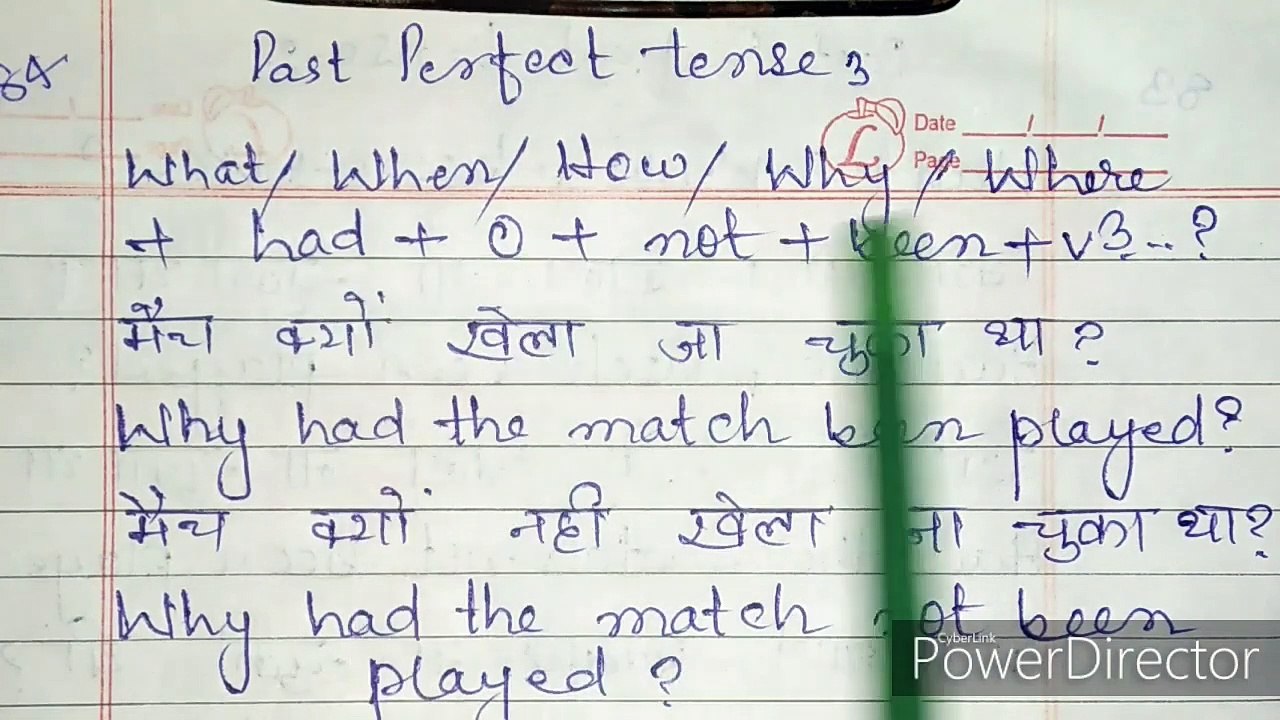 Past Perfect tense 3
Date / /
Page
What/ When/ How/ Why/ Where
+ had + O + not + been + v3..?
मैच क्यों खेला जा चुका था?
Why had the match been played?
मैच क्यों नही खेला जा चुका था?
Why had the match not been
played?
CyberLink
PowerDirector